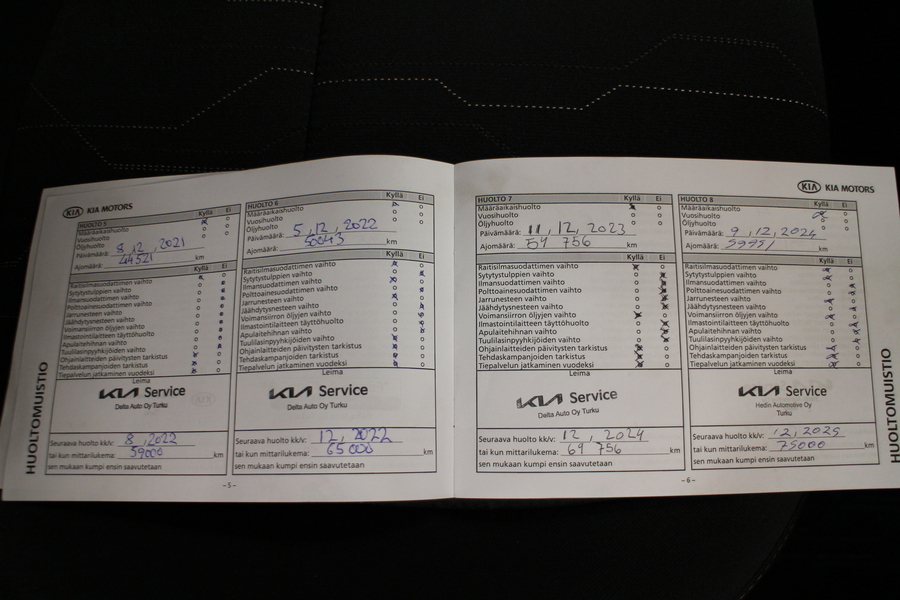 KIA KIA MOTORS
HUOLTOMUISTIO
HUOLTO 5 Kyllä Ei
Määräaikaishuolto
Vuosihuolto
Öljyhuolto
Päivämäärä: 8, 12, 2021
Ajomäärä: 44521
Kyllä Ei
Raitisilmasuodattimen vaihto
Sytytystulppien vaihto
Ilmansuodattimen vaihto
Polttoainesuodattimen vaihto
Jarrunesteen vaihto
Jäähdytysnesteen vaihto
Voimansiirron öljyjen vaihto
Ilmastointilaitteen täyttöhuolto
Apulaitehihnan vaihto
Tuulilasinpyyhkijöiden vaihto
Ohjainlaitteiden päivitysten tarkistus
Tehdaskampanjoiden tarkistus
Tiepalvelun jatkaminen vuodeksi
Leima
KIA Service
Delta Auto Oy Turku
Seuraava huolto kk/v: 8, 2022
tai kun mittarilukema: 59000 km
sen mukaan kumpi ensin saavutetaan
HUOLTO 6 Kyllä Ei
Määräaikaishuolto
Vuosihuolto
Öljyhuolto
Päivämäärä: 5, 12, 2022
Ajomäärä: 50043 km
Kyllä Ei
Raitisilmasuodattimen vaihto
Sytytystulppien vaihto
Ilmansuodattimen vaihto
Polttoainesuodattimen vaihto
Jarrunesteen vaihto
Jäähdytysnesteen vaihto
Voimansiirron öljyjen vaihto
Ilmastointilaitteen täyttöhuolto
Apulaitehihnan vaihto
Tuulilasinpyyhkijöiden vaihto
Ohjainlaitteiden päivitysten tarkistus
Tehdaskampanjoiden tarkistus
Tiepalvelun jatkaminen vuodeksi
Leima
KIA Service
Delta Auto Oy Turku
Seuraava huolto kk/v: 12, 2022
tai kun mittarilukema: 65000 km
sen mukaan kumpi ensin saavutetaan
-5-
HUOLTO 7 Kyllä Ei
Määräaikaishuolto
Vuosihuolto
Öljyhuolto
Päivämäärä: 11, 12, 2023
Ajomäärä: 54 756 km
Kyllä Ei
Raitisilmasuodattimen vaihto
Sytytystulppien vaihto
Ilmansuodattimen vaihto
Polttoainesuodattimen vaihto
Jarrunesteen vaihto
Jäähdytysnesteen vaihto
Voimansiirron öljyjen vaihto
Ilmastointilaitteen täyttöhuolto
Apulaitehihnan vaihto
Tuulilasinpyyhkijöiden vaihto
Ohjainlaitteiden päivitysten tarkistus
Tehdaskampanjoiden tarkistus
Tiepalvelun jatkaminen vuodeksi
Leima
KIA Service
Delta Auto Oy Turku
Seuraava huolto kk/v: 12, 2024
tai kun mittarilukema: 69 756 km
sen mukaan kumpi ensin saavutetaan
KIA KIA MOTORS
HUOLTO 8 Kyllä Ei
Määräaikaishuolto
Vuosihuolto
Öljyhuolto
Päivämäärä: 9, 12, 2024
Ajomäärä: 59951 km
Kyllä Ei
Raitisilmasuodattimen vaihto
Sytytystulppien vaihto
Ilmansuodattimen vaihto
Polttoainesuodattimen vaihto
Jarrunesteen vaihto
Jäähdytysnesteen vaihto
Voimansiirron öljyjen vaihto
Ilmastointilaitteen täyttöhuolto
Apulaitehihnan vaihto
Tuulilasinpyyhkijöiden vaihto
Ohjainlaitteiden päivitysten tarkistus
Tehdaskampanjoiden tarkistus
Tiepalvelun jatkaminen vuodeksi
Leima
KIA Service
Hedin Automotive Oy
Turku
Seuraava huolto kk/v: 12, 2025
tai kun mittarilukema: 75000 km
sen mukaan kumpi ensin saavutetaan
-6-
HUOLTOMUISTIO